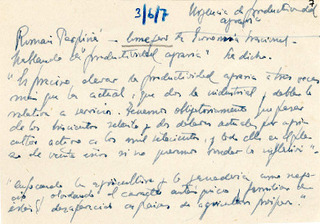 3/6/7
Urgencia de productividad
agraria
Román Perpiñá - Consejero de Economía Nacional -
hablando de "productividad agraria" ha dicho.
"Es preciso elevar la productividad agraria tres veces
más que la actual, que dos la industrial, y doble la
relativa a servicios. Tenemos objetivamente que pasar
de los trescientos setenta y dos dólares actuales por agri-
cultor activo a los mil setecientos, y todo ello en el plazo
de veinte años si no queremos
"enfocando la agricultura y la ganadería como nego-
cio, olvidando el carácter autárquico y familiar